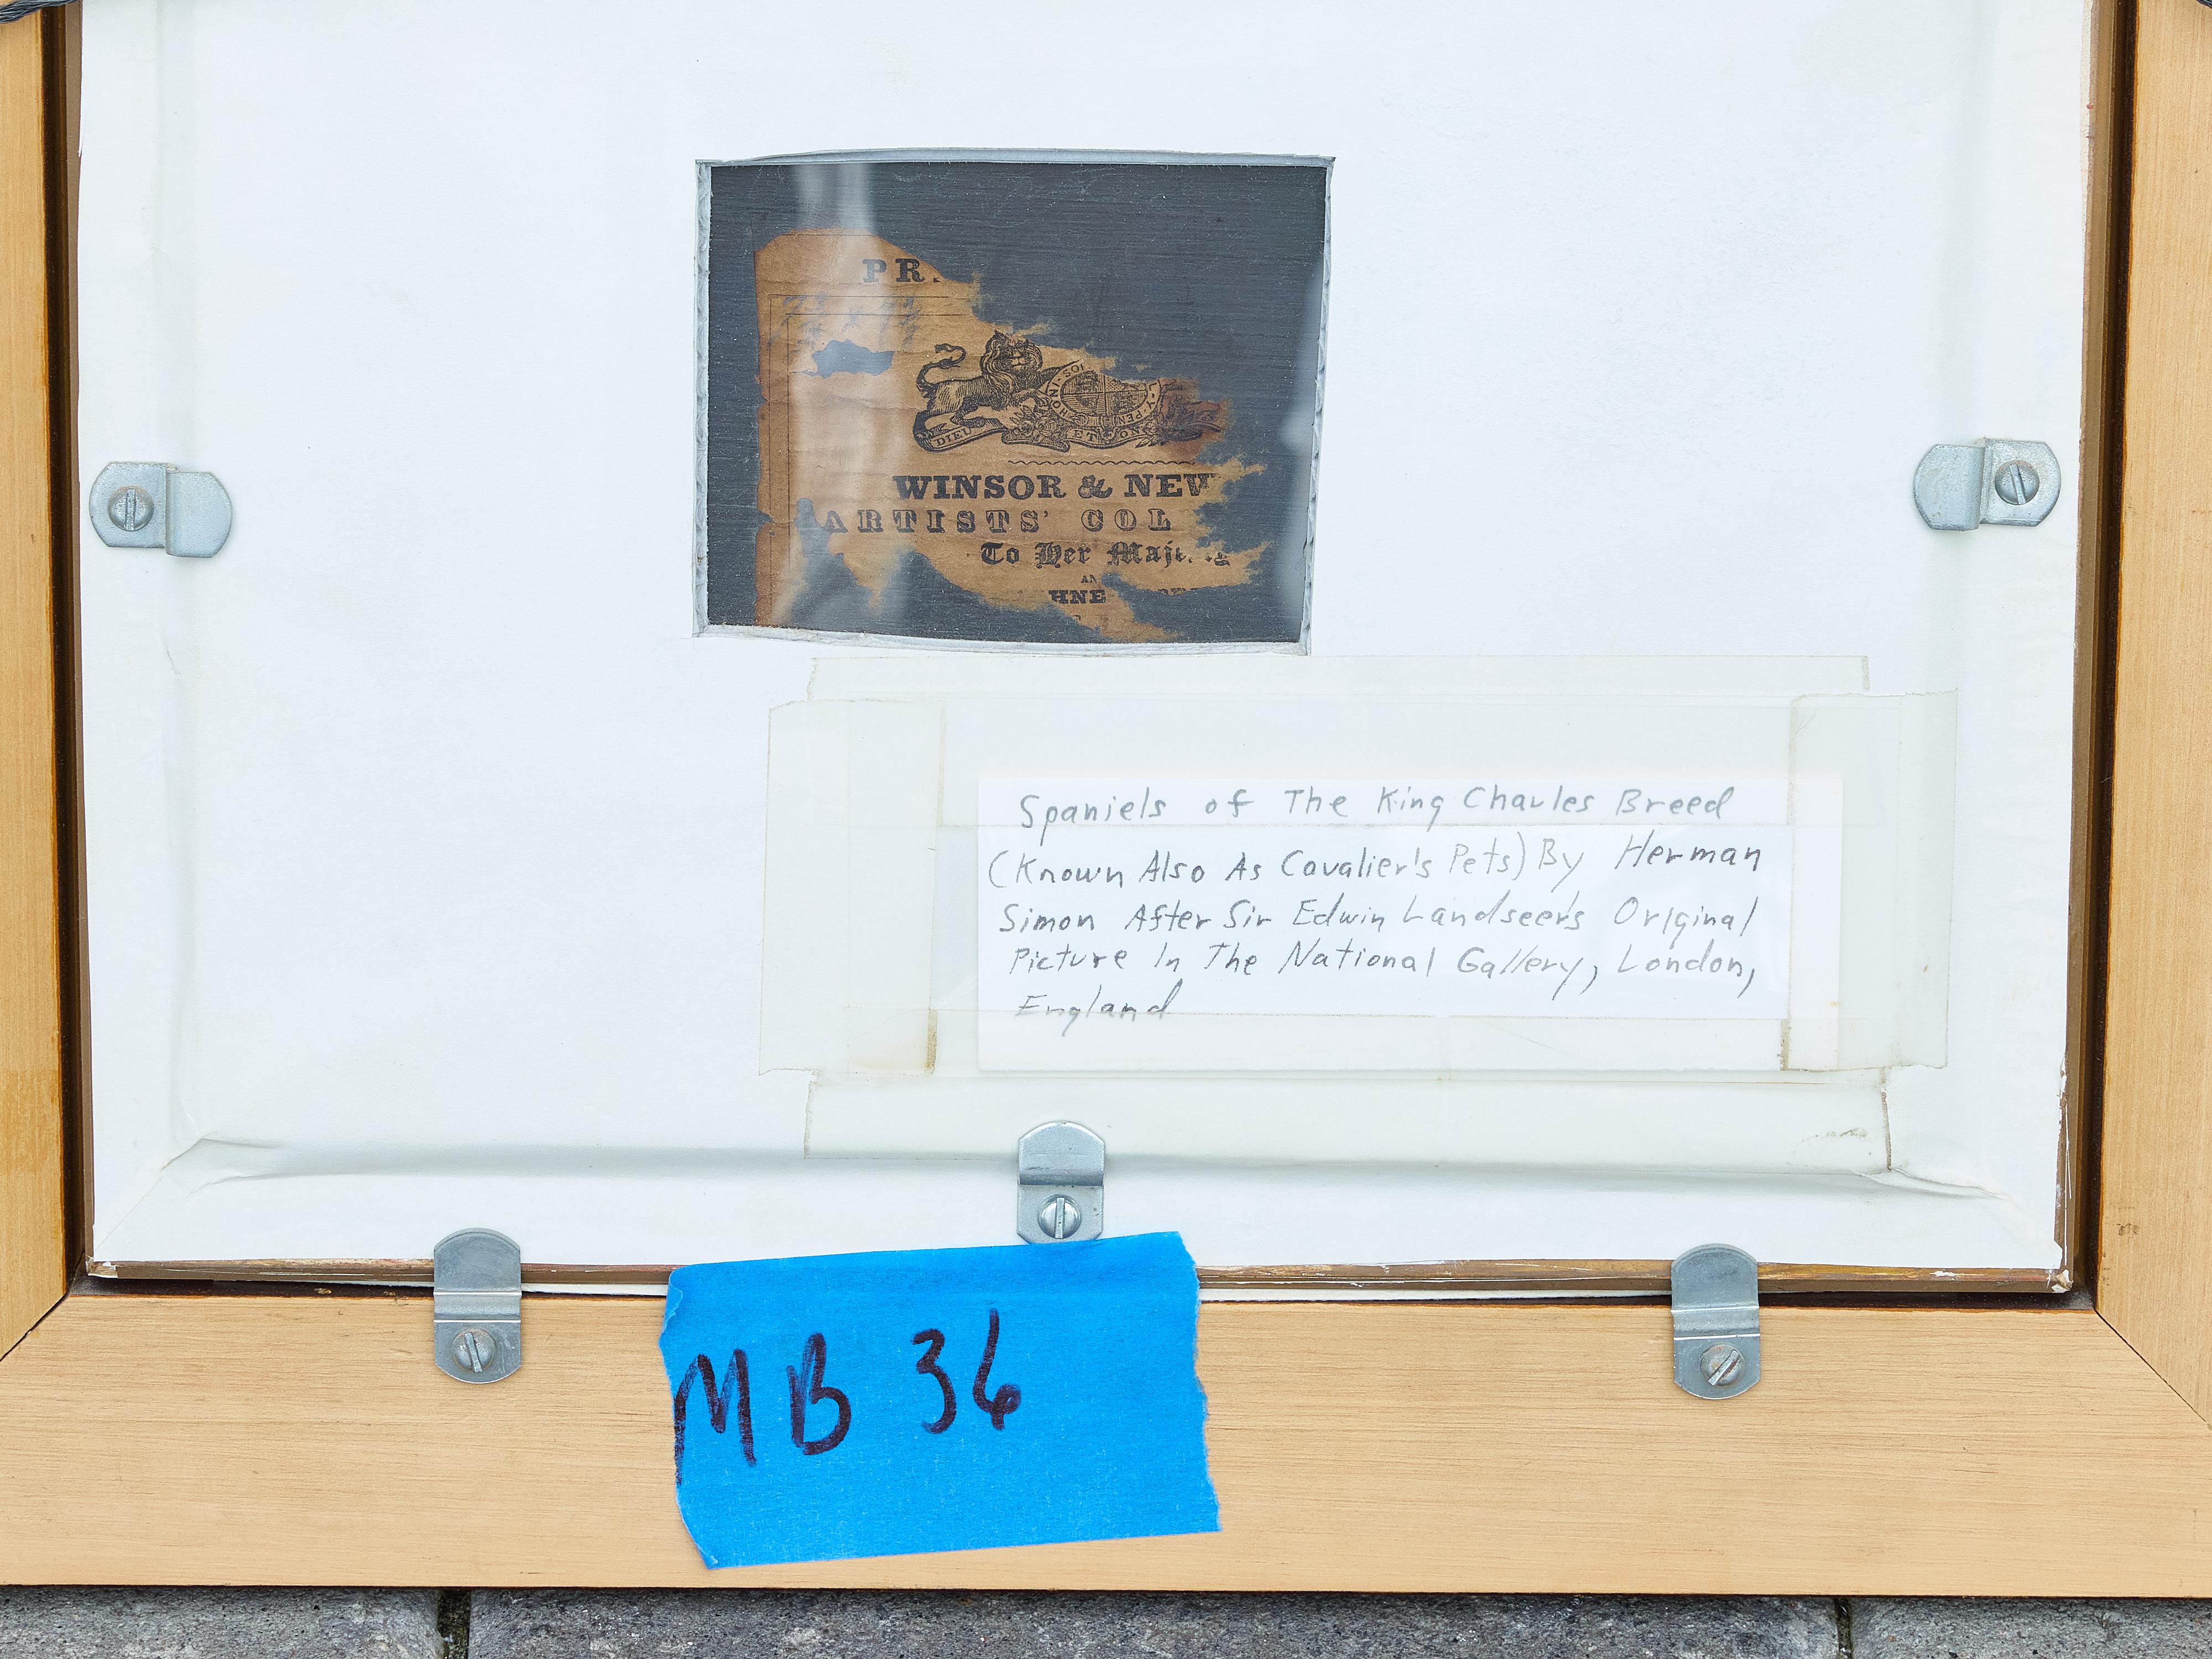 PR
WINSOR & NEW
ARTISTS' COL
To Her Maje
AN
HNE
DIEU ET MON
HONI·SOI L·Y·PEN
Spaniels of The King Charles Breed
(Known Also As Cavalier's Pets) By Herman
Simon After Sir Edwin Landseer's Original
Picture In The National Gallery, London,
England
MB 36